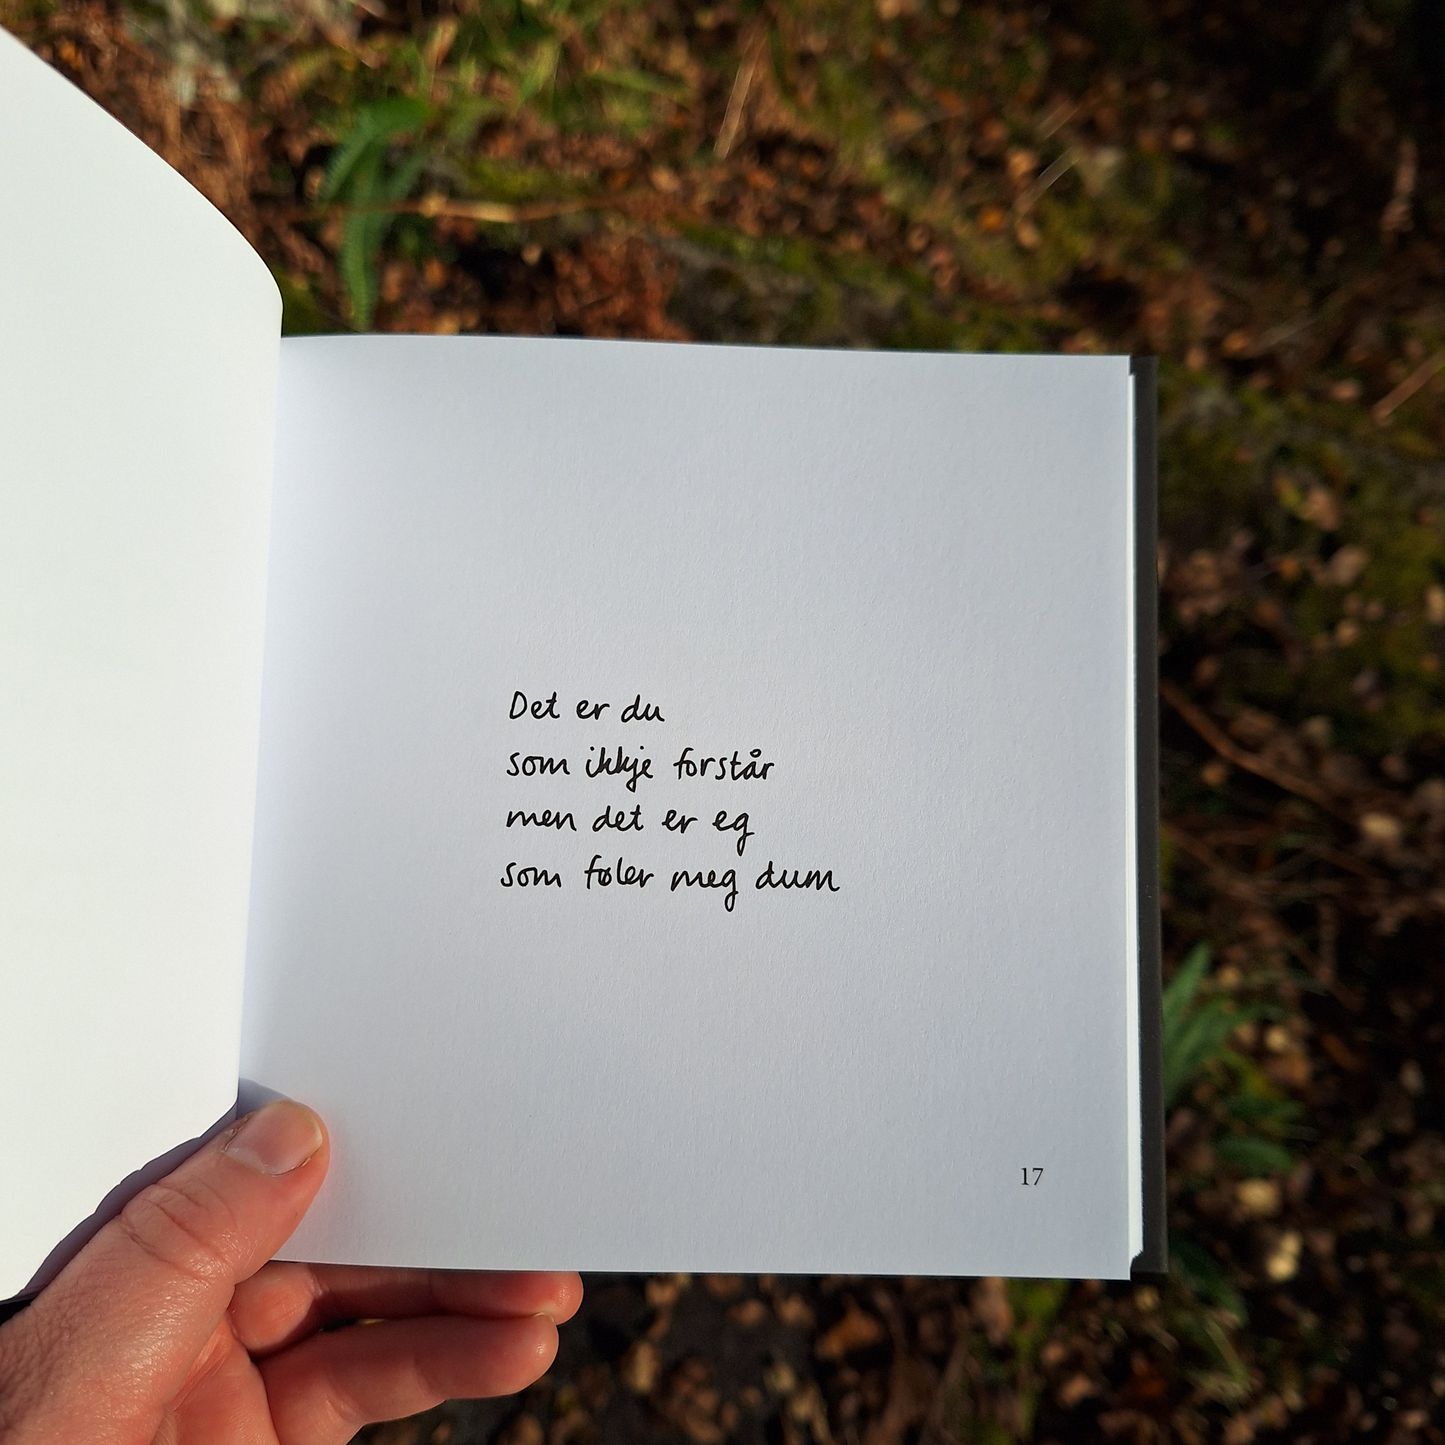 Det er du
som ikkje forstår
men det er eg
som føler meg dum
17